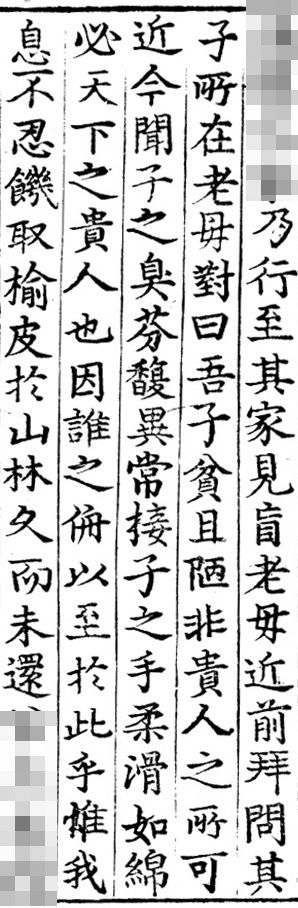 乃行至其家見盲老母近前拜問其
子所在老母對曰吾子貧且陋非貴人之所可
近今聞子之臭芬馥異常接子之手柔滑如綿
必天下之貴人也因誰之侜以至於此乎惟我
息不忍饑取榆皮於山林久而未還